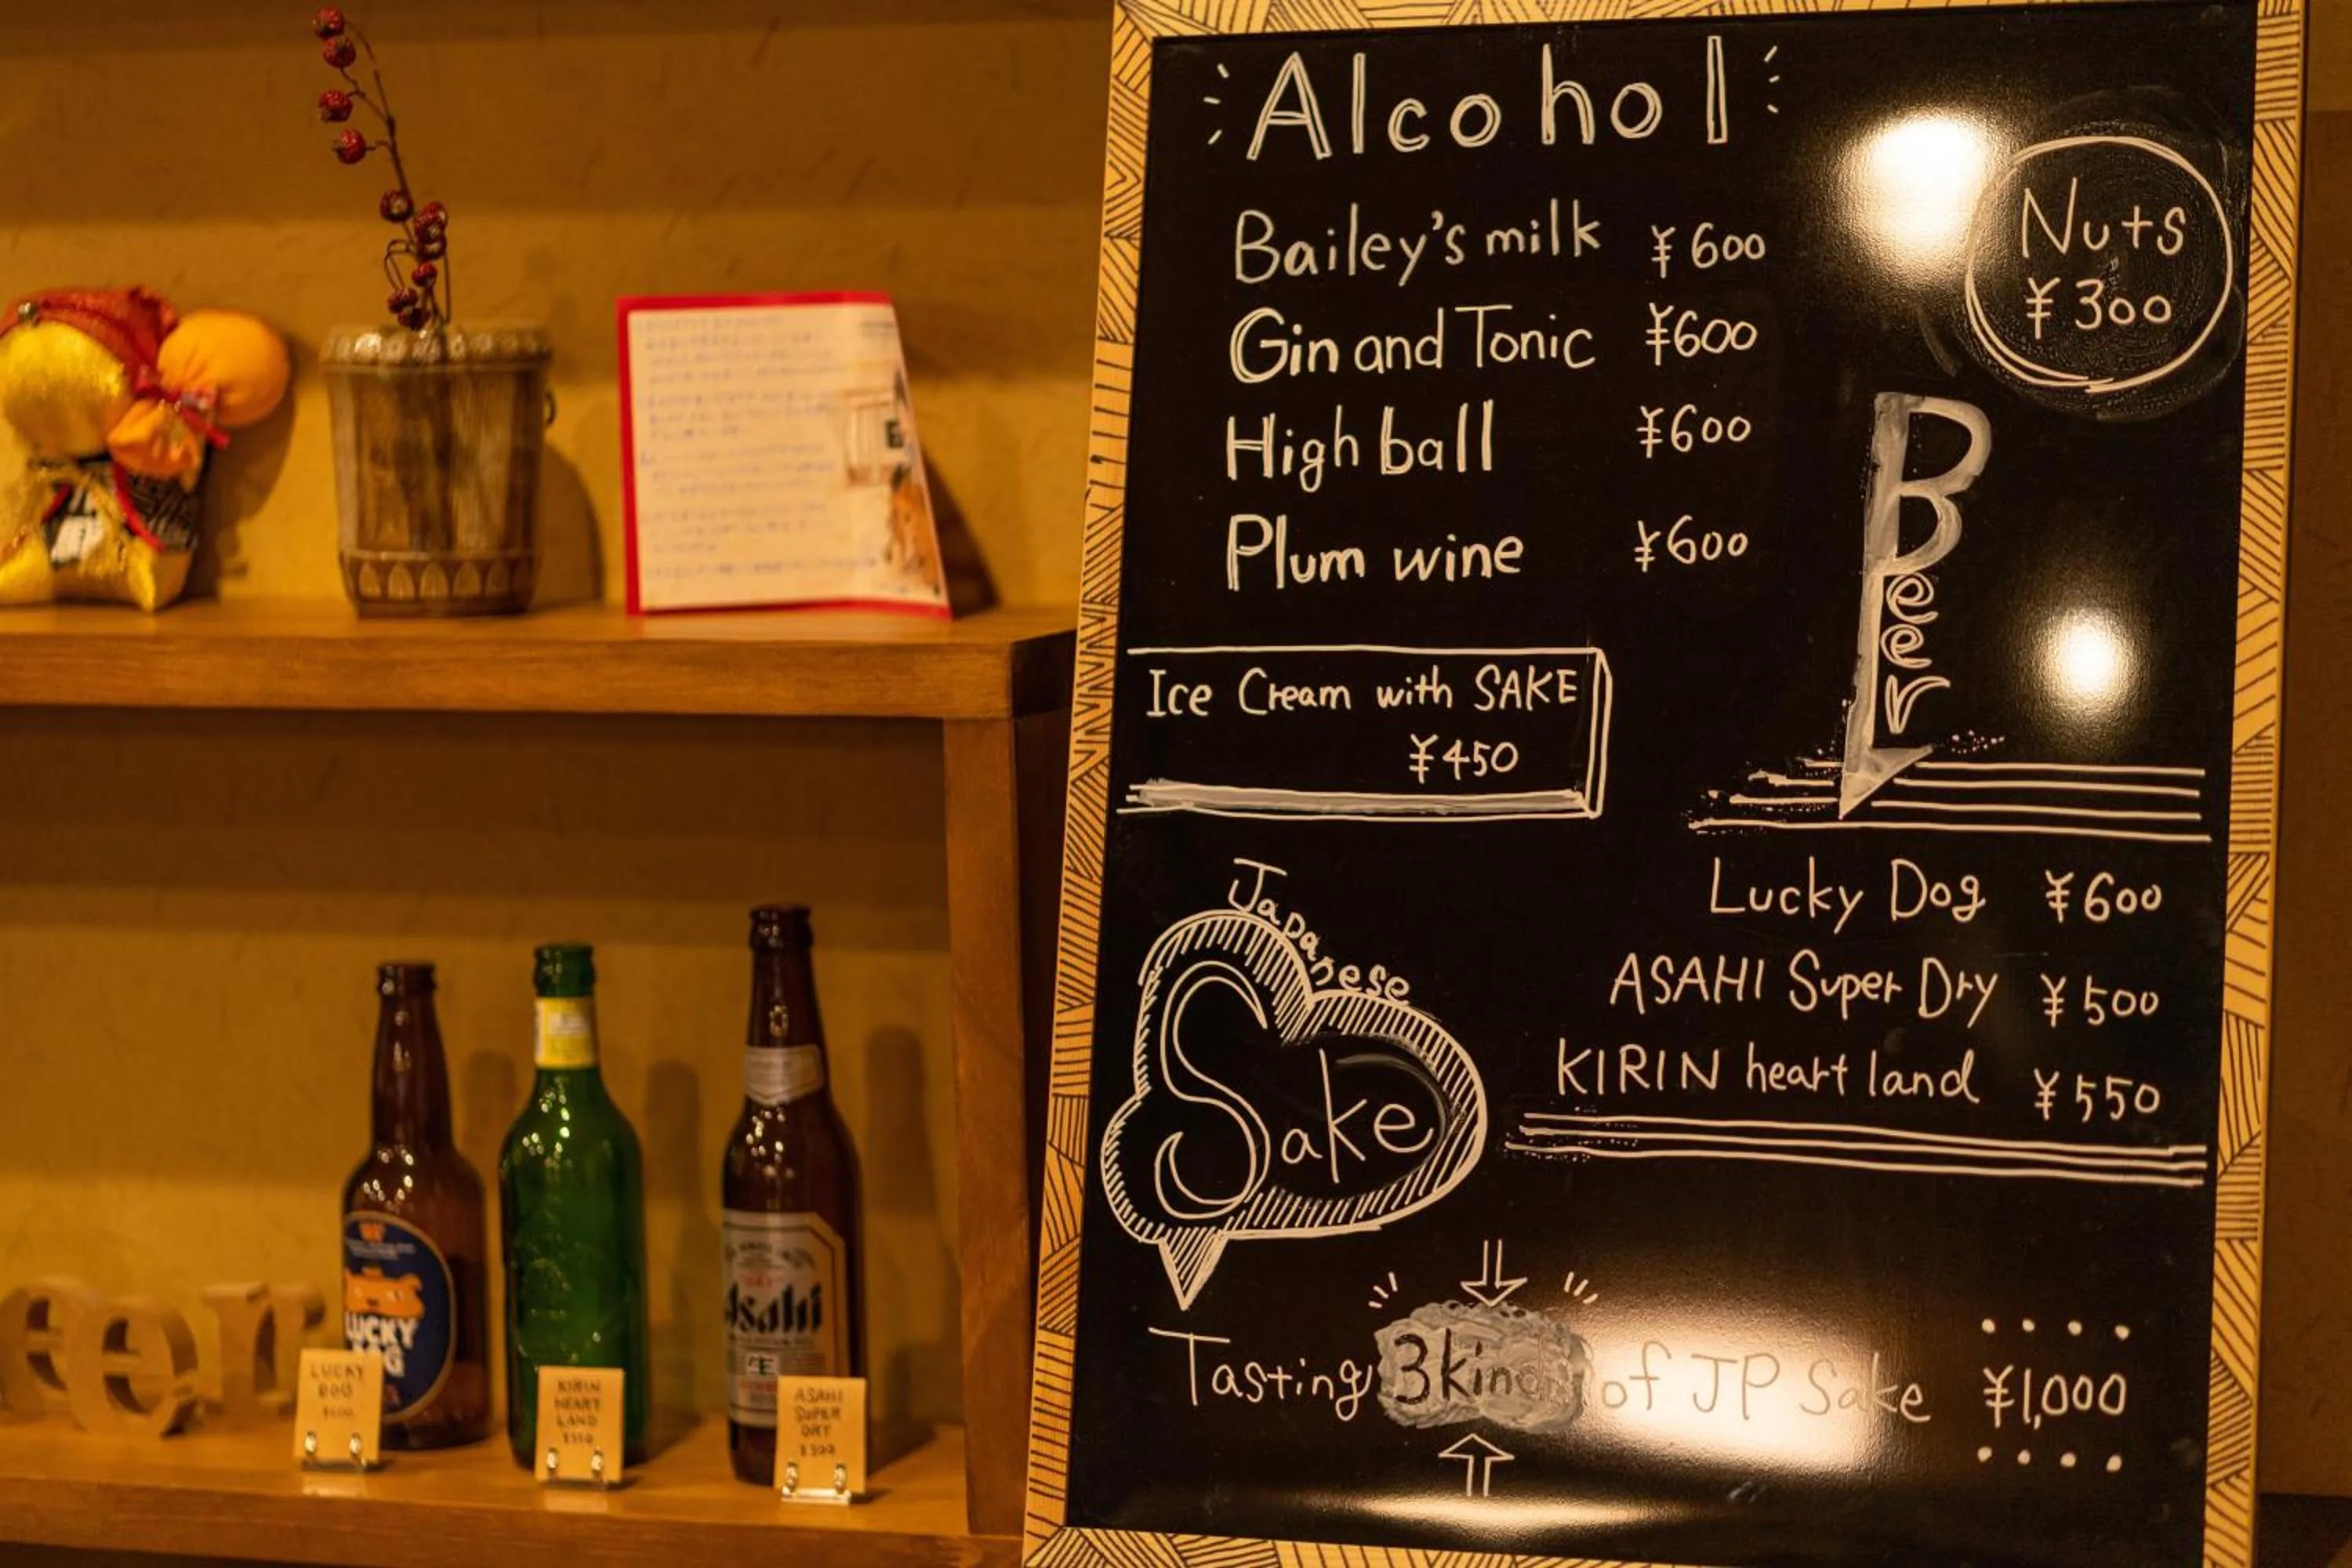 Alcohol
Bailey's milk ¥600
Gin and Tonic ¥600
High ball ¥600
Plum wine ¥600
Nuts
¥300
Ice Cream with SAKE
¥450
Beer
Lucky Dog ¥600
ASAHI Super Dry ¥500
KIRIN heart land ¥550
Japanese
Sake
Tasting 3kinds of JP Sake ¥1,000
LUCKY
DOG
Asahi
LUCKY
DOG
¥600
KIRIN
HEART
LAND
¥550
ASAHI
SUPER
DRY
¥500